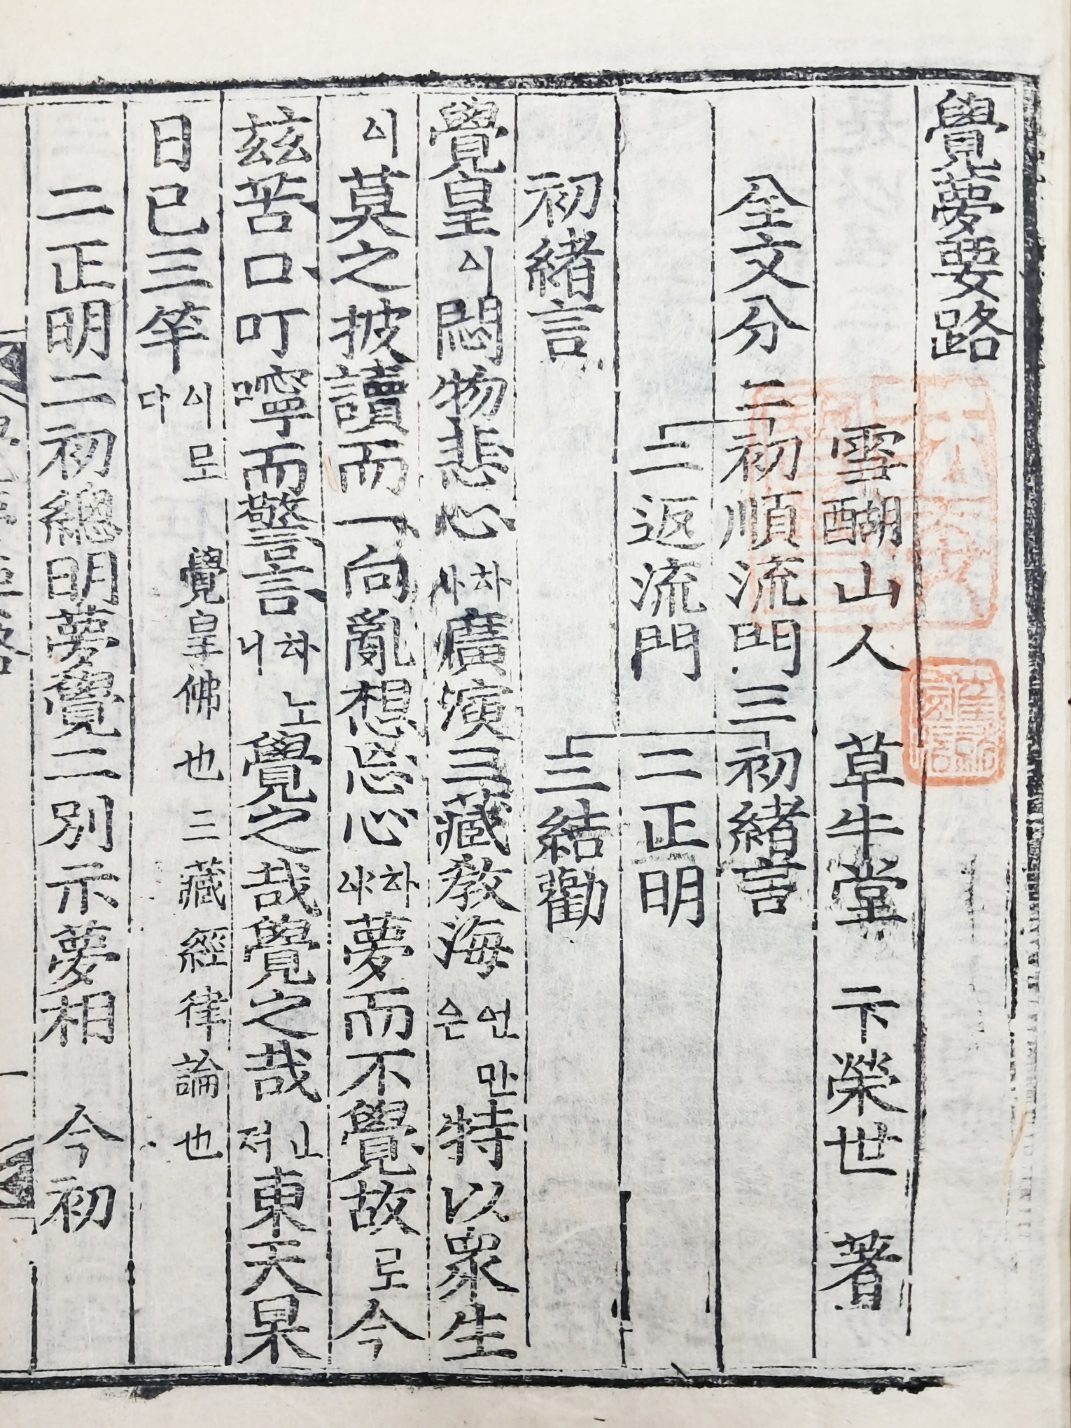 覺夢要路
雪醐山人 草牛堂 卞榮世 著
全文分二初順流門三初緖言
二返流門 二正明
初緖言 三結勸
覺皇시悶物悲心하사廣演三藏敎海언만은特以衆生
시莫之披讀而一向亂想忘心하사夢而不覺故로今
玆苦口叮嚀而警言하노니覺之哉覺之哉인저東天杲
日已三竿시로다 覺皇佛也三藏經律論也
二正明二初總明夢覺二別示夢相 今初